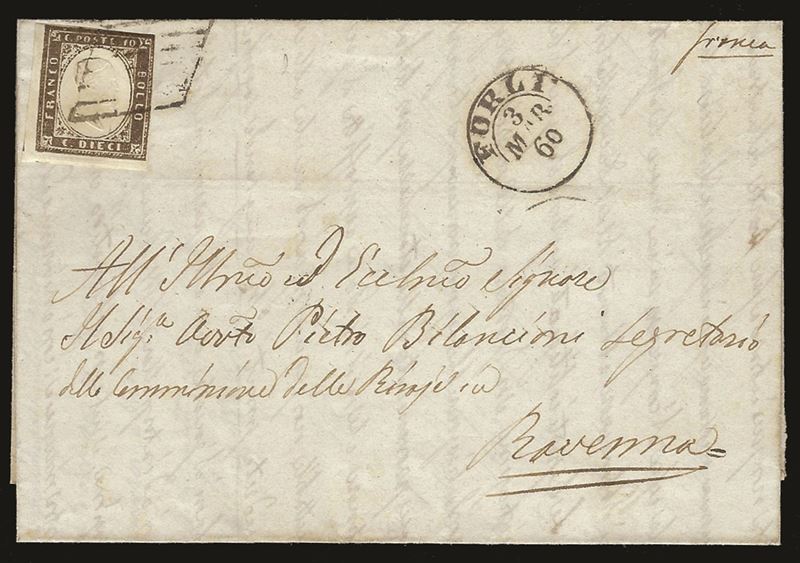 C. POSTE 10
FRANCO
BOLLO
C. DIECI
franca
FORLI'
3
MAR
60
All' Illmo ed Eccelmo Signore
Il Sigr. Avvto Pietro Bilancioni Segretario
della Commissione delle
Ravenna